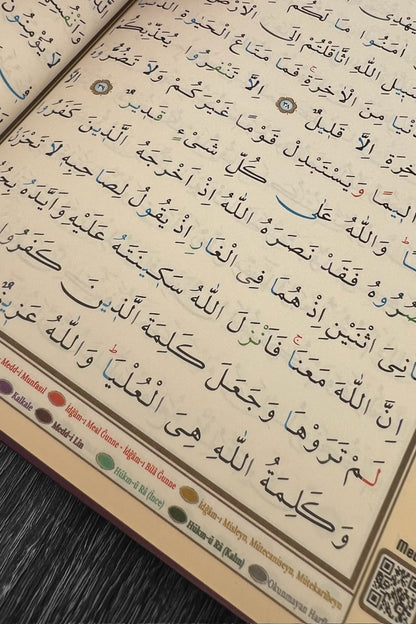 يَهْدِى
اٰمَنُوا مَا لَكُمْ
اللّٰهِ اثَّاقَلْتُمْ اِلَى
مِنَ الْاٰخِرَةِ فَمَا مَتَاعُ الْحَيٰوةِ
اِلَّا قَلِيلٌ ٣٨ اِلَّا تَنْفِرُوا يُعَذِّبْكُمْ
اَلِيمًا وَيَسْتَبْدِلْ قَوْمًا غَيْرَكُمْ وَلَا تَضُرُّوهُ
وَاللّٰهُ عَلٰى كُلِّ شَىْءٍ قَدِيرٌ ٣٩
فَقَدْ نَصَرَهُ اللّٰهُ اِذْ اَخْرَجَهُ الَّذِينَ كَفَرُوا
اثْنَيْنِ اِذْ هُمَا فِى الْغَارِ اِذْ يَقُولُ لِصَاحِبِهِ لَا تَحْزَنْ
اِنَّ اللّٰهَ مَعَنَا فَاَنْزَلَ اللّٰهُ سَكِينَتَهُ عَلَيْهِ وَاَيَّدَهُ
لَمْ تَرَوْهَا وَجَعَلَ كَلِمَةَ الَّذِينَ كَفَرُوا
وَكَلِمَةُ اللّٰهِ هِىَ الْعُلْيَا وَاللّٰهُ عَزِيزٌ
Medd-i Munfasıl
İdğam-ı Meal Ğunne - İdğam-ı Bilâ Ğunne
İdğam-ı Misleyn, Mütecaniseyn, Mütekaribeyn
Kalkale
Medd-i Lin
Hükm-ü Râ (İnce)
Hükm-ü Râ (Kalın)
Okunmayan